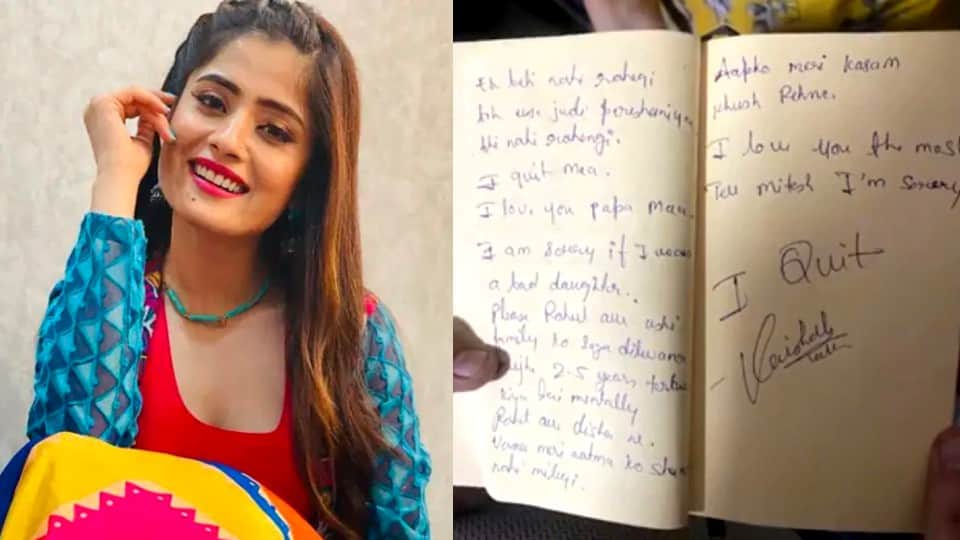 Ek beti nahi rahegi
toh usse judi pereshaniyan
bhi nahi rahengi.
I quit maa.
I love you papa maa.
I am sorry if I was
a bad daughter.
Please Rahul aur uski
family ko saza dilwana
mujhe 2.5 years torture
kiya hai mentally
Rahul aur disha ne.
Varna meri aatma ko
nahi milegi.
Aapko meri kasam
khush Rehne.
I love you the most
Tell mitesh I'm sorry
I Quit